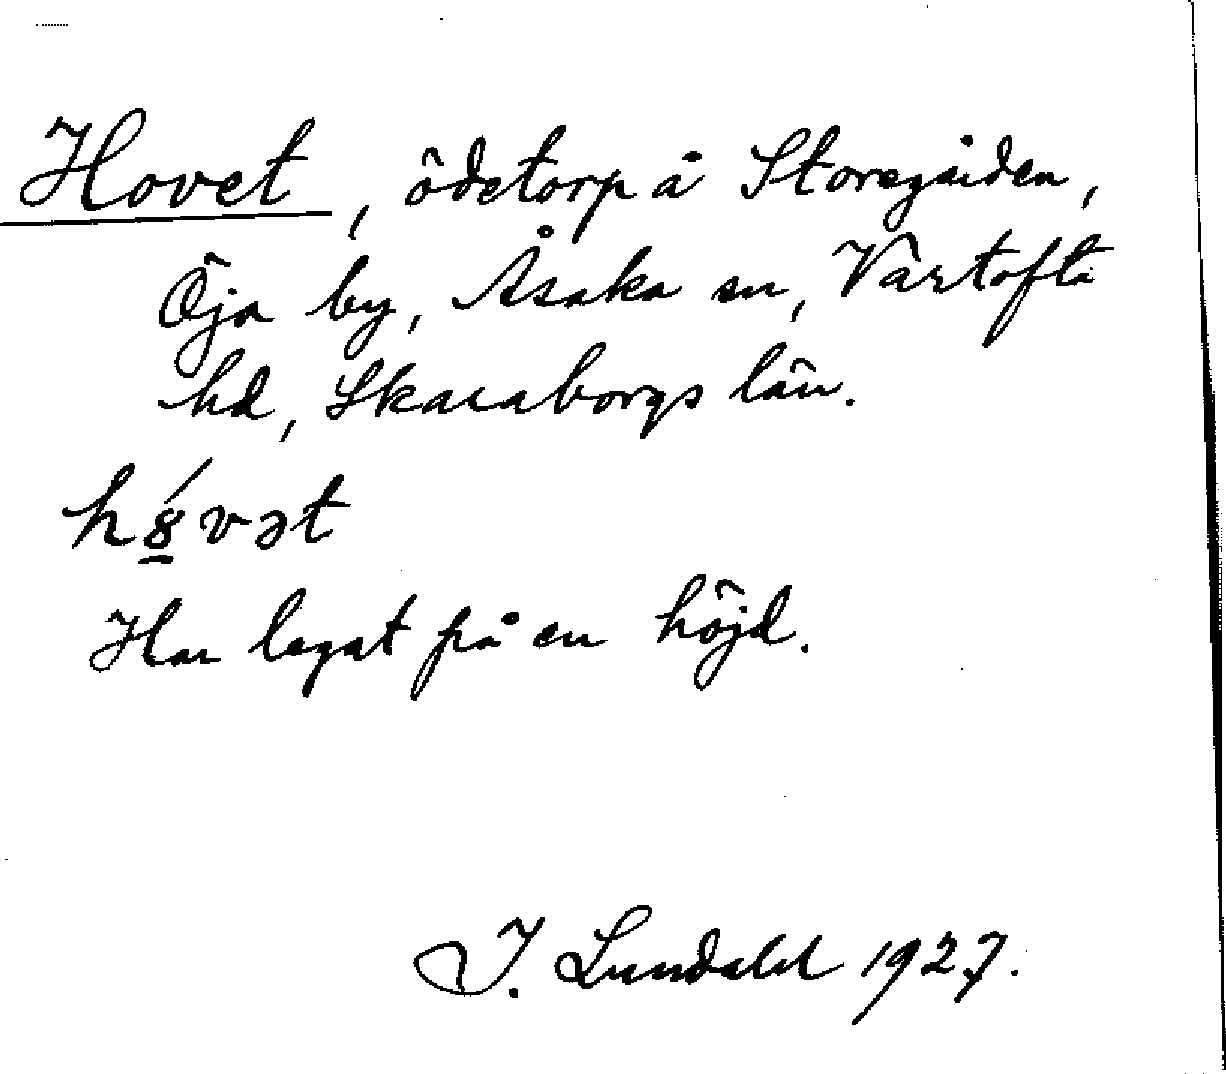 Hovet, ödetorp å Storegården,
Öja by, Åsaka sn, Vartofta
hd, Skaraborgs län.
h8́vət
Har legat på en höjd.
I. Lundahl 1927.